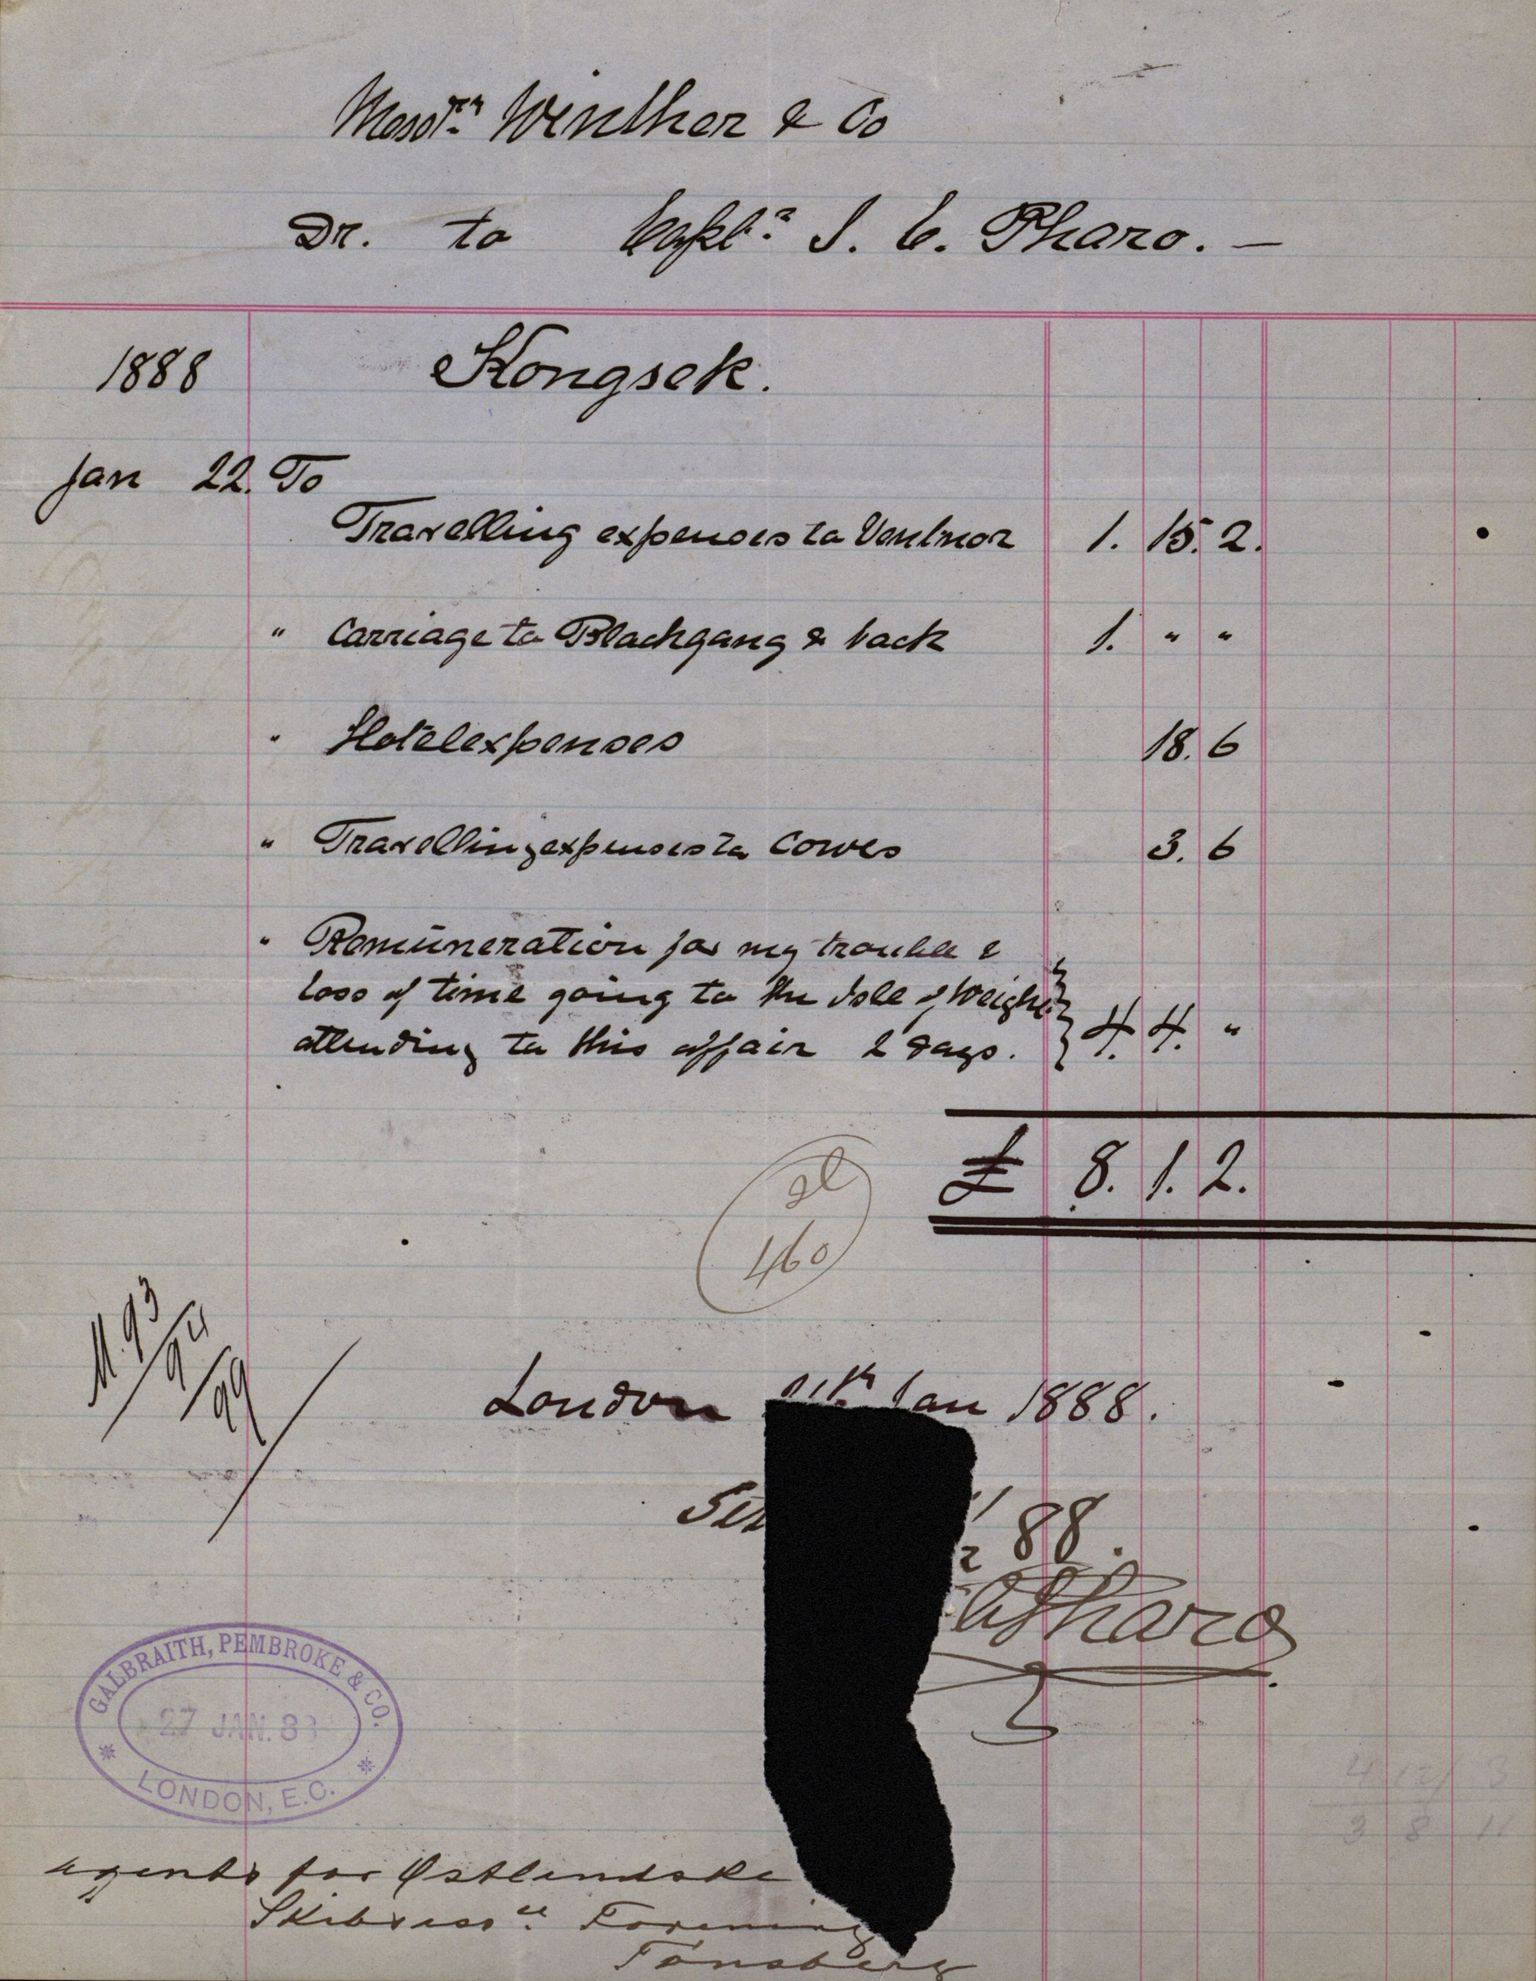 Messrs Winther & Co
Dr. to Captn J. C. Pharo. —
1888 Kongsek.
Jan 22. To
Travelling expenses to Ventnor 1. 15. 2.
" Carriage to Blackgang & back 1. " "
" Hotelexpenses 18. 6
" Travellingexpenses to Cowes 3. 6
" Remuneration for my trouble &
loss of time going to the Isle of Weight
attending to this affair 2 days. 4. 4. "
£ 8. 1. 2.
460
M. 93/94/99/
London Jan 1888.
88.
Pharo
GALBRAITH, PEMBROKE & CO.
27 JAN. 88
LONDON, E.C.
agents for Østlandske
Skibsass Forening
Tönsberg